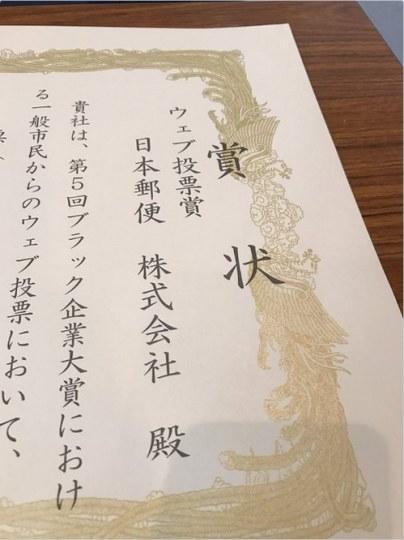 賞状
ウェブ投票賞
日本郵便 株式会社 殿
貴社は、第5回ブラック企業大賞におけ
る一般市民からのウェブ投票において、